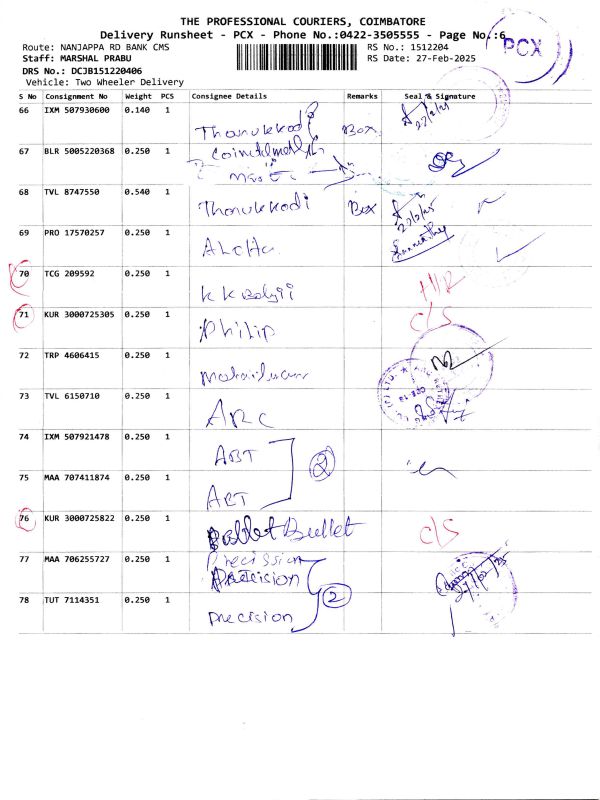 THE PROFESSIONAL COURIERS, COIMBATORE
Delivery Runsheet - PCX - Phone No.:0422-3505555 - Page No.:6
PCX
Route: NANJAPPA RD BANK CMS
RS No.: 1512204
Staff: MARSHAL PRABU
RS Date: 27-Feb-2025
DRS No.: DCJB151220406
Vehicle: Two Wheeler Delivery
S No Consignment No Weight PCS Consignee Details Remarks Seal & Signature
66 IXM 507930600 0.140 1 Thanukkodi Box 27/2/25
67 BLR 5005220368 0.250 1
68 TVL 8747550 0.540 1 Thanukkodi Box 27/2/25
69 PRO 17570257 0.250 1
70 TCG 209592 0.250 1 KK
71 KUR 3000725305 0.250 1 Philip C/S
72 TRP 4606415 0.250 1
73 TVL 6150710 0.250 1 ARC
74 IXM 507921478 0.250 1 ABT 2
75 MAA 707411874 0.250 1 ABT
76 KUR 3000725822 0.250 1 Bullet C/S
77 MAA 706255727 0.250 1 Precission
Precision 2 27/02/25
78 TUT 7114351 0.250 1 precision